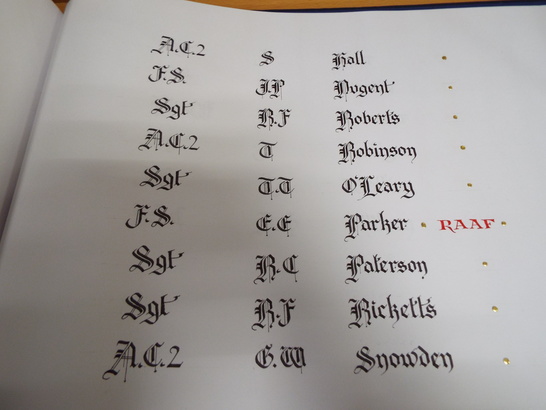 A.C.2 S Hall
F.S. J.P Nugent
Sgt R.F Roberts
A.C.2 T Robinson
Sgt T.T O'Leary
F.S. E.E Parker RAAF
Sgt R.C Paterson
Sgt R.F Ricketts
A.C.2 G.W Snowden